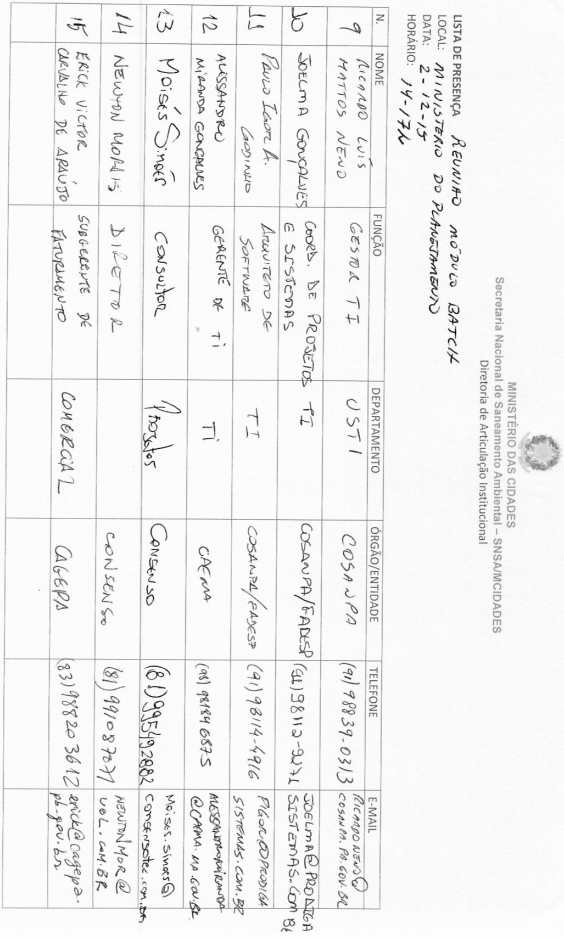 MINISTÉRIO DAS CIDADES
Secretaria Nacional de Saneamento Ambiental – SNSA/MCIDADES
Diretoria de Articulação Institucional
LISTA DE PRESENÇA REUNIÃO MÓDULO BATCH
LOCAL: MINISTÉRIO DO PLANEJAMENTO
DATA: 2-12-15
HORÁRIO: 14-17h
N. NOME FUNÇÃO DEPARTAMENTO ÓRGÃO/ENTIDADE TELEFONE E-MAIL
9 RICARDO LUÍS GESTOR TI USTI COSANPA (91) 98839-0313
MATTOS NENO COSANPA.PA.GOV.BR
10 JOELMA GONÇALVES COORD. DE PROJETOS TI COSANPA/FADESP (91) 98112-9271 JOELMA@PRODIGA
E SISTEMAS SISTEMAS.COM.BR
11 PAULO IGOR A. ARQUITETO DE TI COSANPA/FADESP (91) 98114-4916 PIGOR@PRODIGA
GODINHO SOFTWARE SISTEMAS.COM.BR
12 ALESSANDRO GERENTE DE TI TI CAEMA (98) 98189 6875
MIRANDA GONÇALVES @CAEMA.MA.GOV.BR
13 MOISÉS SIMÕES CONSULTOR PROJETOS CONSENSO (81) 995492882 moises.simoes@
consensotec.com.br
14 NEWTON MORAIS DIRETOR CONSENSO (81) 991087071 NEWTONMOR@
UOL.COM.BR
15 ERICK VICTOR SUBGERENTE DE COMERCIAL CAGEPA (83) 988203612 erick@cagepa.
CARVALHO DE ARAÚJO FATURAMENTO pb.gov.br